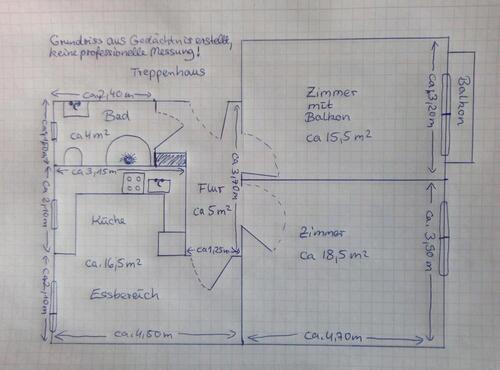 Grundriss aus Gedächtnis erstellt,
keine professionelle Messung!
Treppenhaus
ca. 2,40m
Bad
ca 4 m²
ca. 3,15m
Küche
ca. 16,5 m²
Essbereich
ca. 2,10m
ca. 2,10m
ca. 4,50m
Flur
ca 5 m²
ca. 3,70m
ca 1,25m
Zimmer
mit
Balkon
ca 15,5 m²
ca. 3,20m
Balkon
Zimmer
ca. 18,5 m²
ca. 3,90m
ca. 4,70m